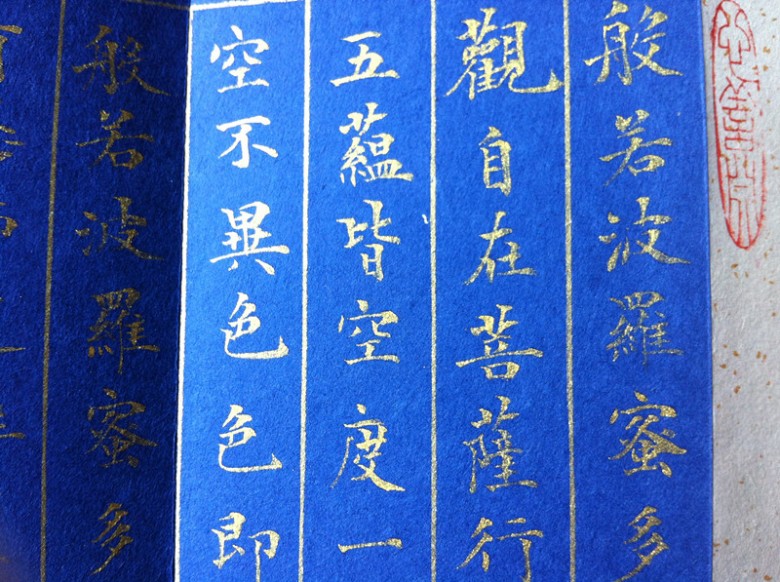 般若波羅蜜多
觀自在菩薩行
五蘊皆空度一
空不異色色即
般若波羅蜜多